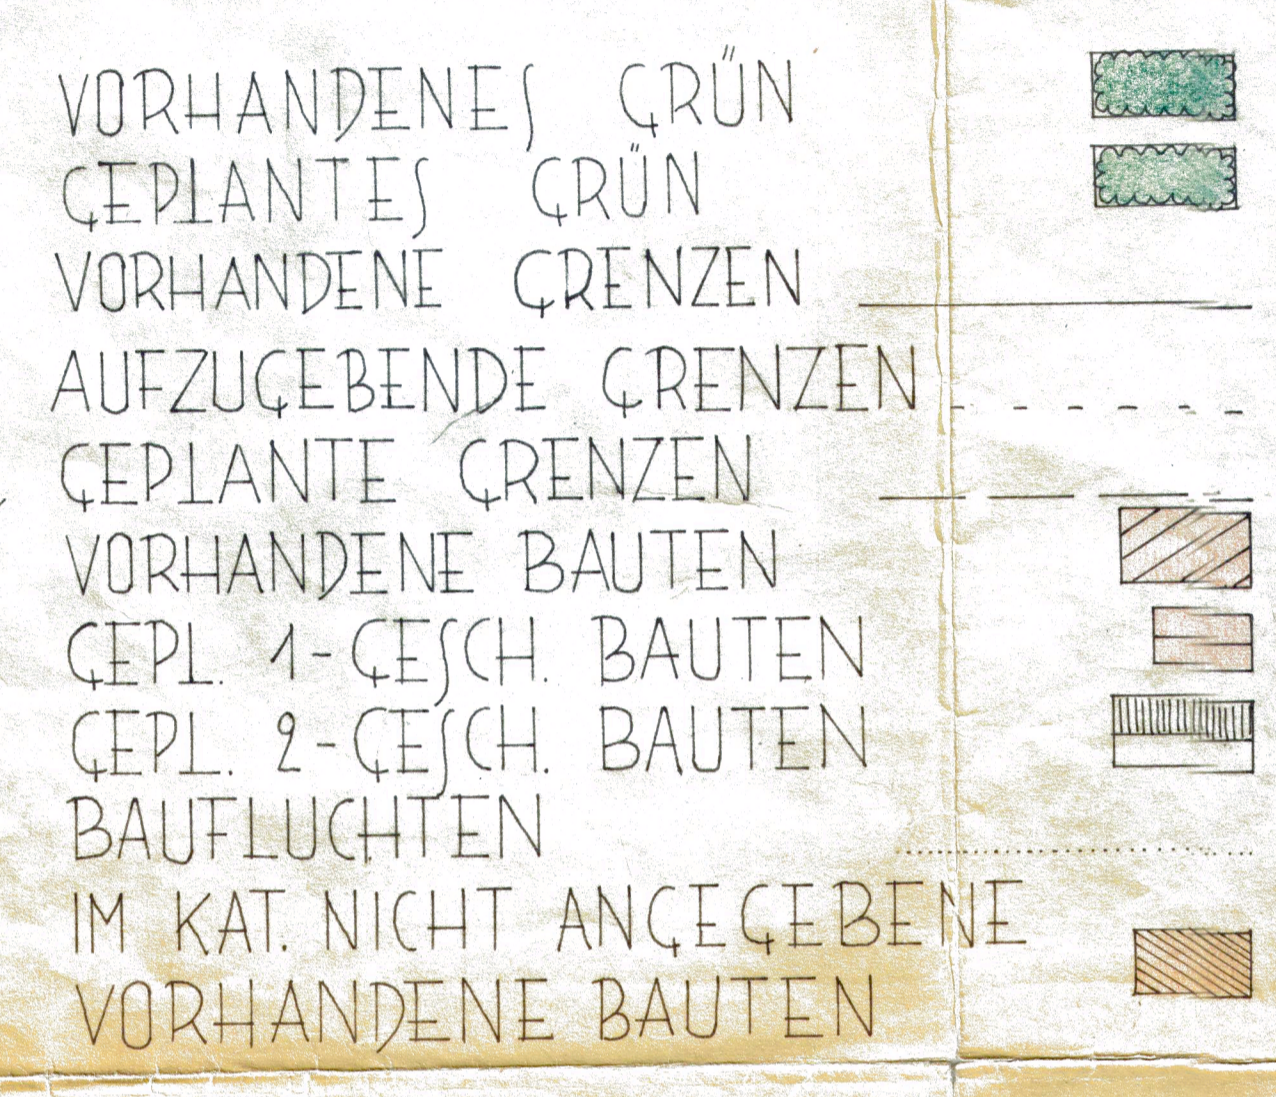 VORHANDENES GRÜN
GEPLANTES GRÜN
VORHANDENE GRENZEN
AUFZUGEBENDE GRENZEN
GEPLANTE GRENZEN
VORHANDENE BAUTEN
GEPL. 1-GESCH. BAUTEN
GEPL. 2-GESCH. BAUTEN
BAUFLUCHTEN
IM KAT. NICHT ANGEGEBENE
VORHANDENE BAUTEN